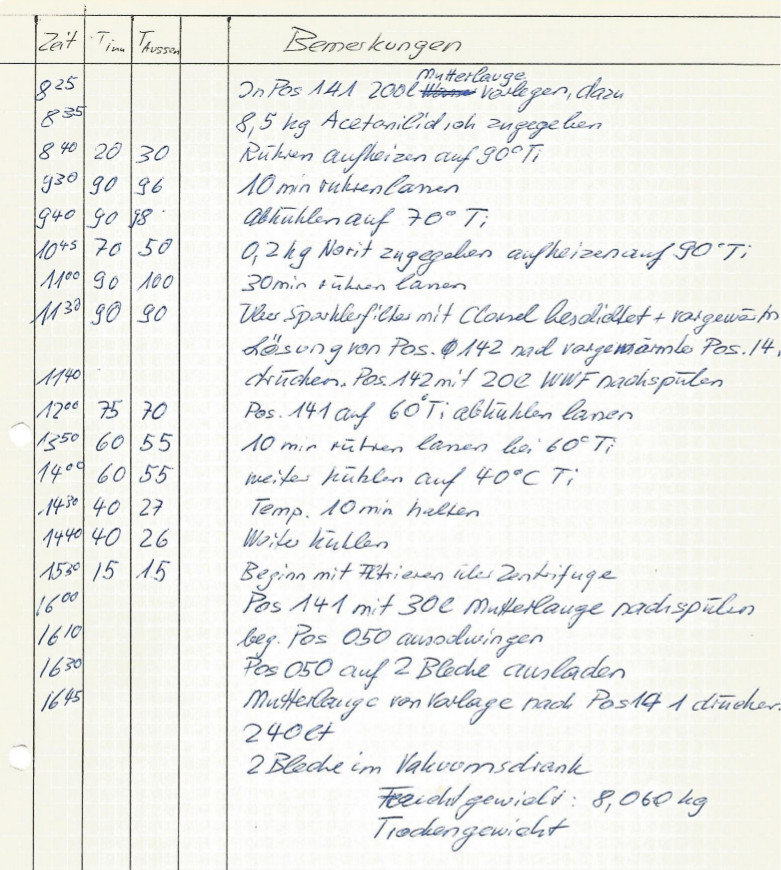 Zeit Tinn TAussen Bemerkungen
8 25 In Pos 141 200l Mutterlauge vorlegen, dazu
8 35 8,5 kg Acetanilid roh zugegeben
8 40 20 30 Rühren aufheizen auf 90°Ti
9 30 90 96 10 min rühren lassen
9 40 90 98 Abkühlen auf 70° Ti
10 45 70 50 0,2 kg Norit zugegeben aufheizen auf 90°Ti
11 00 90 100 30 min rühren lassen
11 30 90 90 Über Sparklerfilter mit Clarcel beschichtet + vorgewärm
Lösung von Pos. 142 nach vorgewärmte Pos. 14
11 40 drücken. Pos. 142 mit 20l WWF nachspülen
12 00 75 70 Pos. 141 auf 60°Ti abkühlen lassen
13 50 60 55 10 min rühren lassen bei 60°Ti
14 00 60 55 weiter kühlen auf 40°C Ti
14 30 40 27 Temp. 10 min halten
14 40 40 26 Weiter kühlen
15 30 15 15 Beginn mit Filtrieren über Zentrifuge
16 00 Pos 141 mit 30l Mutterlauge nachspülen
16 10 beg. Pos 050 ausschwingen
16 30 Pos 050 auf 2 Bleche ausladen
16 45 Mutterlauge von Vorlage nach Pos 141 drücken.
240 lt
2 Bleche im Vakuumschrank
Feuchtgewicht: 8,060 kg
Trockengewicht